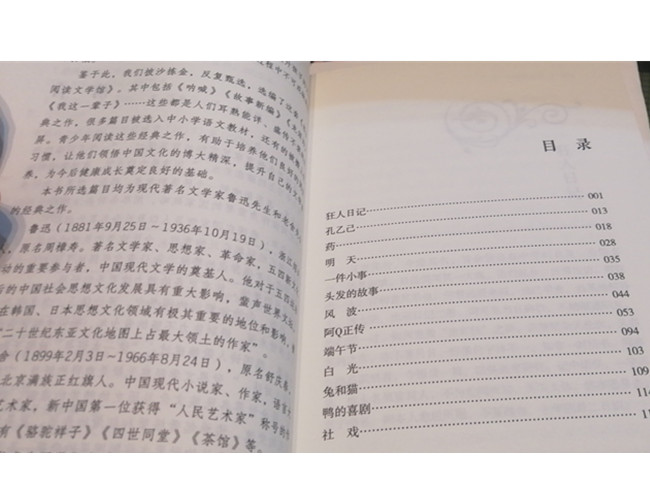 过程中不可
鉴于此，我们披沙拣金，反复甄选，选编了这套
阅读文学馆》。其中包括《呐喊》《故事新编》
《我这一辈子》……这些都是人们耳熟能详、盛传不
典之作，很多篇目被选入中小学语文教材，还有的
屏。青少年阅读这些经典之作，有助于培养他们良好的
习惯，让他们领悟中国文化的博大精深，提升自己的
养，为今后健康成长奠定良好的基础。
本书所选篇目均为现代著名文学家鲁迅先生和老舍
的经典之作。
鲁迅（1881年9月25日～1936年10月19日），浙江
人，原名周樟寿。著名文学家、思想家、革命家，五四新文
动的重要参与者，中国现代文学的奠基人。他对于五四
后的中国社会思想文化发展具有重大影响，蜚声世界文
在韩国、日本思想文化领域有极其重要的地位和影响，
“二十世纪东亚文化地图上占最大领土的作家”。
舍（1899年2月3日～1966年8月24日），原名舒庆春，
北京满族正红旗人。中国现代小说家、作家，语言
艺术家，新中国第一位获得“人民艺术家”称号的
有《骆驼祥子》《四世同堂》《茶馆》等。
目 录
狂人日记……001
孔乙己……013
药……018
明 天……028
一件小事……035
头发的故事……038
风 波……044
阿Q正传……053
端午节……094
白 光……103
兔和猫……109
鸭的喜剧……114
社 戏……